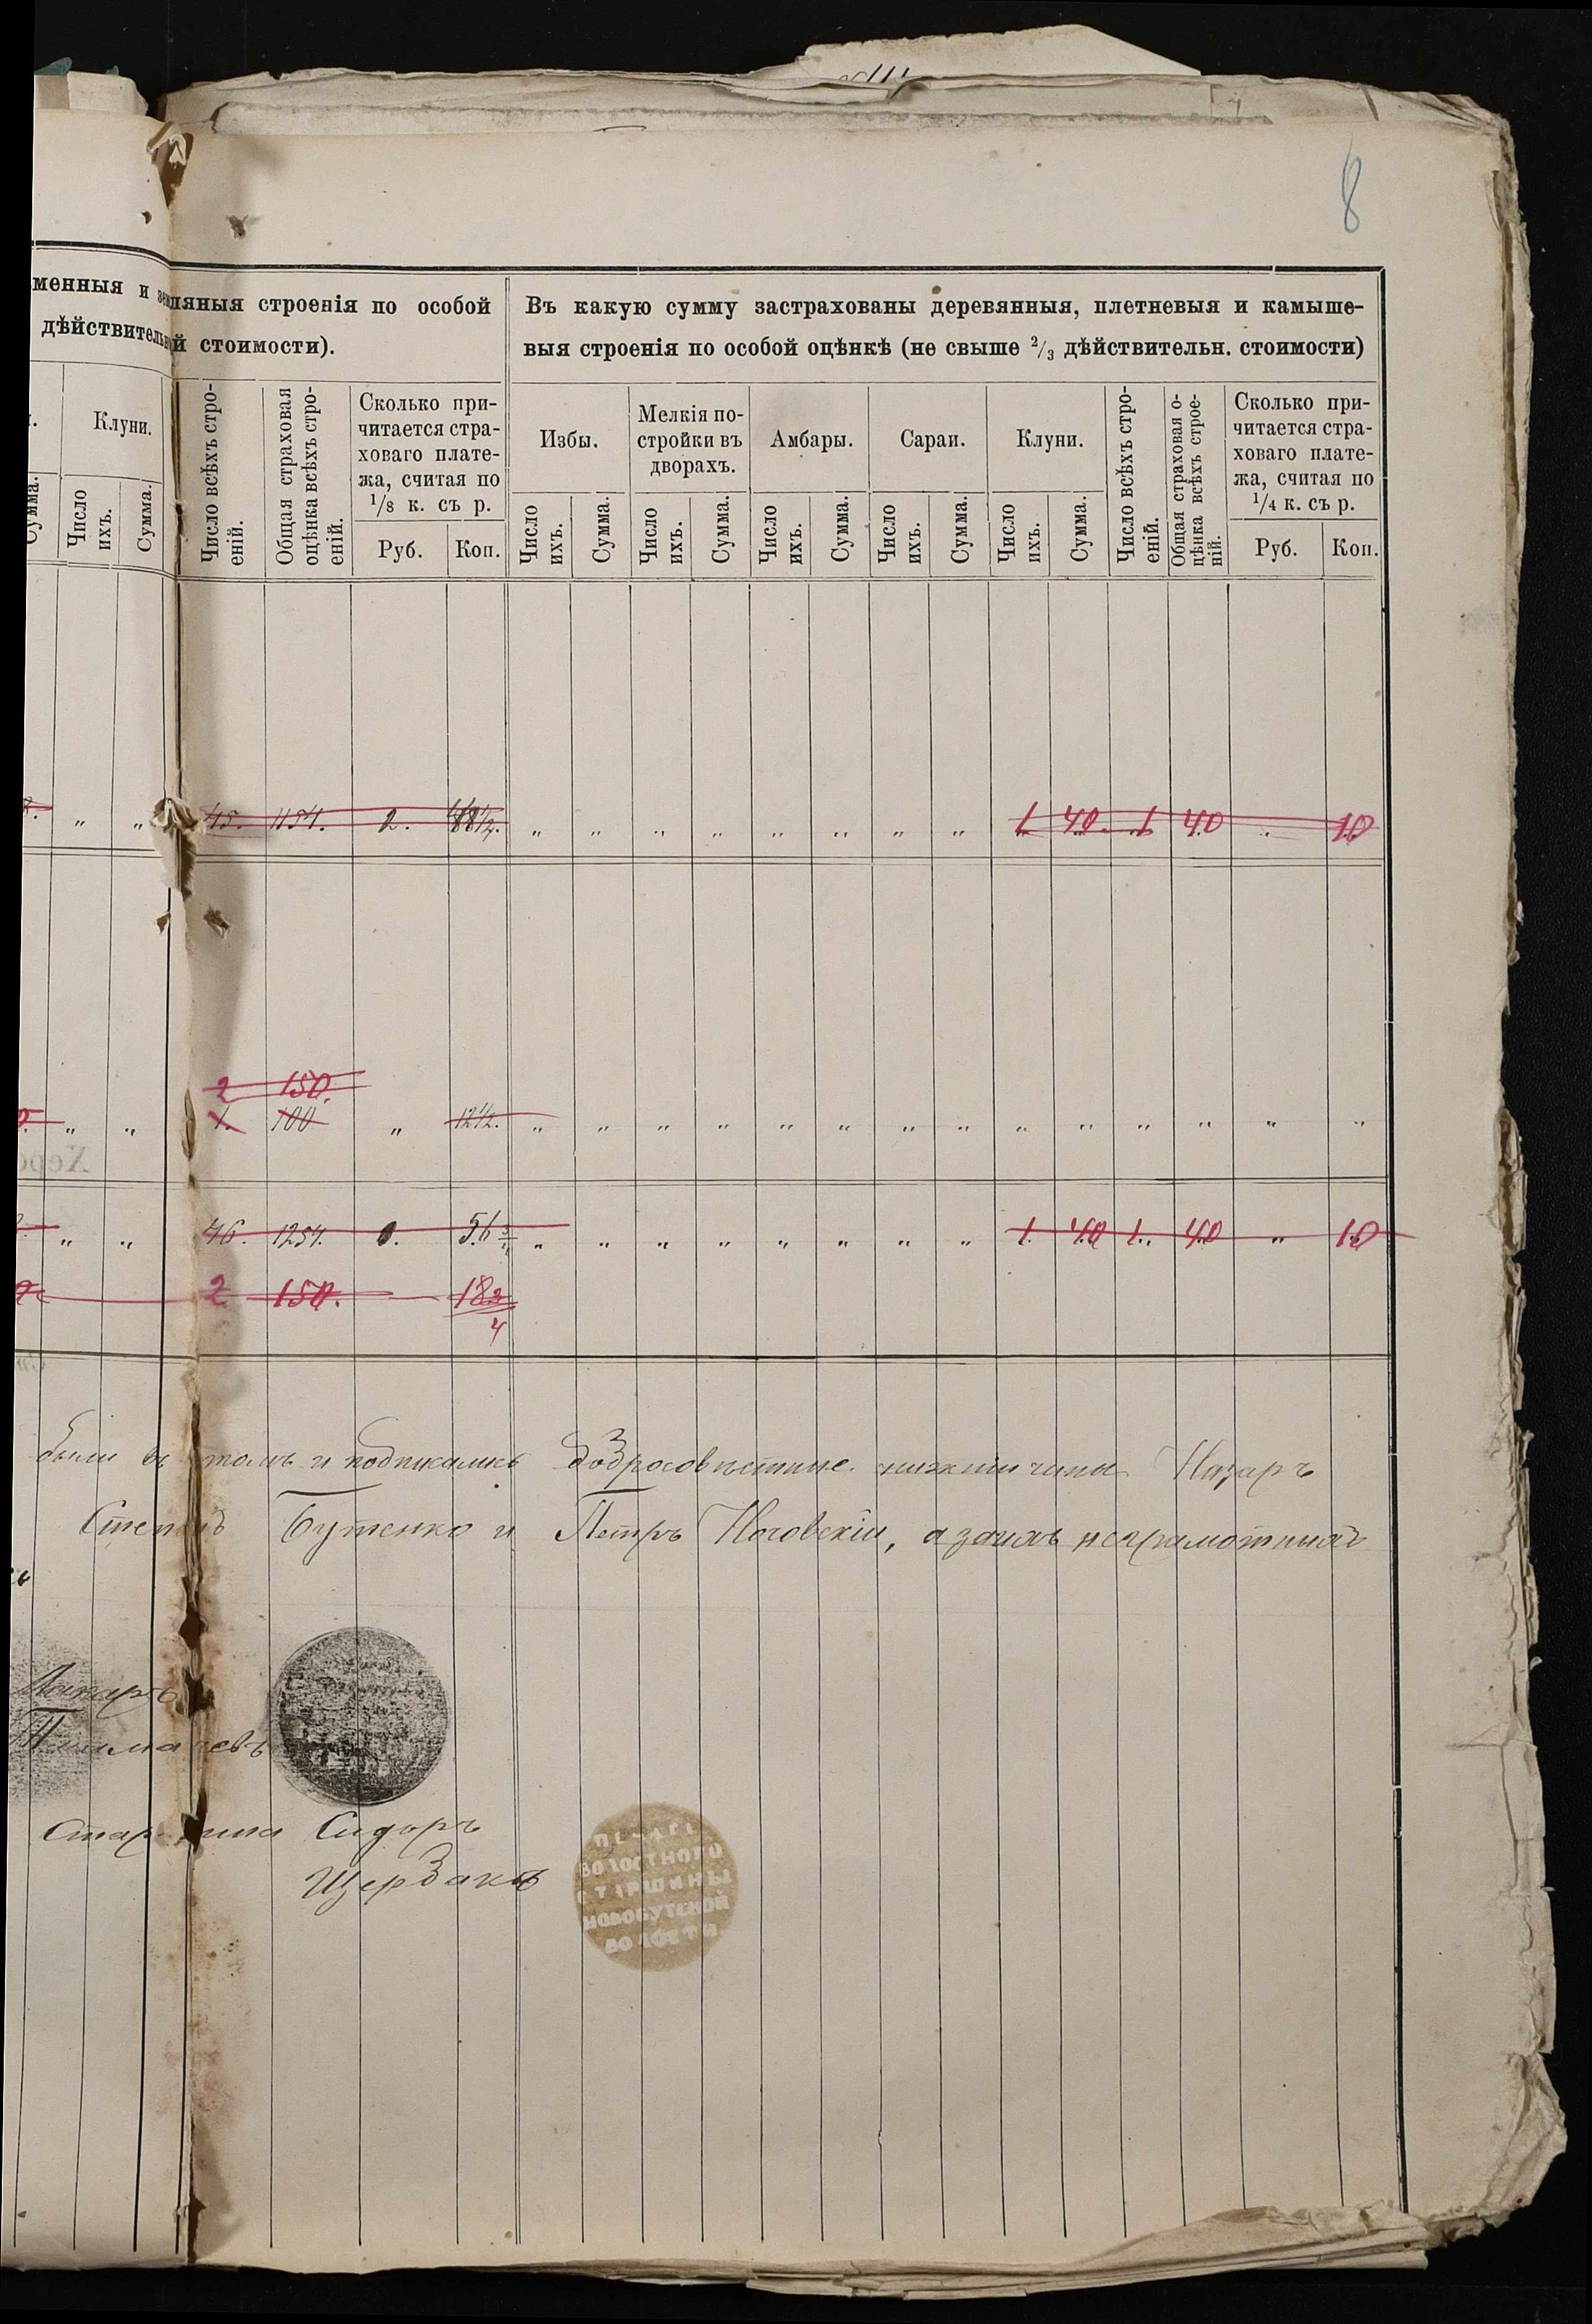 8
менныя и земляныя строенія по особой
дѣйствительной стоимости).
Въ какую сумму застрахованы деревянныя, плетневыя и камыше-
выя строенія по особой оцѣнкѣ (не свыше 2/3 дѣйствительн. стоимости)
Клуни.
Сумма.
Число ихъ.
Сумма.
Число всѣхъ стро-
еній.
Общая страховая
оцѣнка всѣхъ стро-
еній.
Сколько при-
читается стра-
ховаго плате-
жа, считая по
1/8 к. съ р.
Руб. Коп.
Избы.
Мелкія по-
стройки въ
дворахъ.
Амбары.
Сараи.
Клуни.
Число ихъ. Сумма. Число ихъ. Сумма. Число ихъ. Сумма. Число ихъ. Сумма. Число ихъ. Сумма.
Число всѣхъ стро-
еній.
Общая страховая о-
цѣнка всѣхъ строе-
ній.
Сколько при-
читается стра-
ховаго плате-
жа, считая по
1/4 к. съ р.
Руб. Коп.
" " 45. 1154. 2. " " " " " " " " 1 40. 1 40 " 10
2 150.
" " 1. 100 " 12 1/2. " " " " " " " " " " " " " "
" " 46. 1254. " " " " " " " " 1. 40 1. 40 " 10
2 150. 18 3/4
были въ томъ и подписались добросовѣстные нижніи чины Назаръ
Степанъ Бутенко и Петръ, а за нихъ неграмотныхъ
Старшина Сидоръ
Щербакъ
ПЕЧАТЬ
ВОЛОСТНОГО
СТАРШИНЫ
НОВОБУГСКОЙ
ВОЛОСТИ